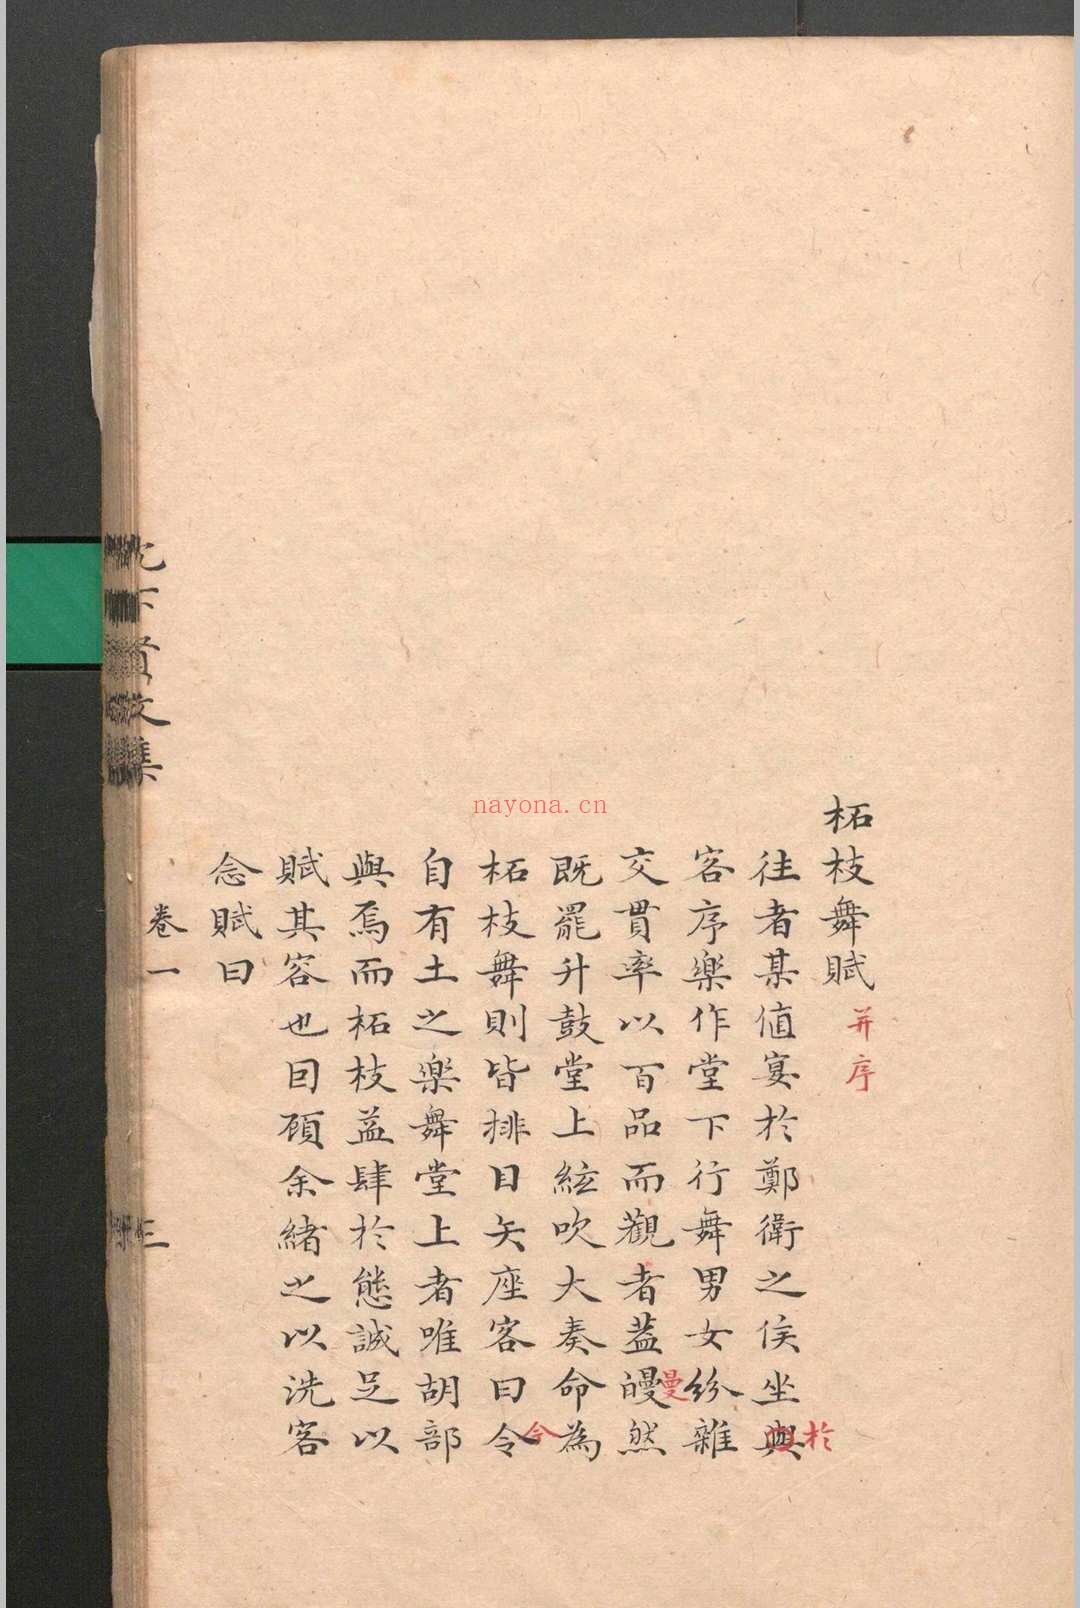 柘枝舞賦 并序
往者某值宴於鄭衛之侯坐與於
客序樂作堂下行舞男女紛雜
交貫率以百品而觀者蓋㬅曼然
既罷升鼓堂上絃吹大奏命為
柘枝舞則皆排目矢座客曰令今
自有土之樂舞堂上者唯胡部
與焉而柘枝益肆於態誠足以
賦其容也囙顾余緒之以洗客
念賦曰
沈下賢文集
卷一
三
nayona.cn